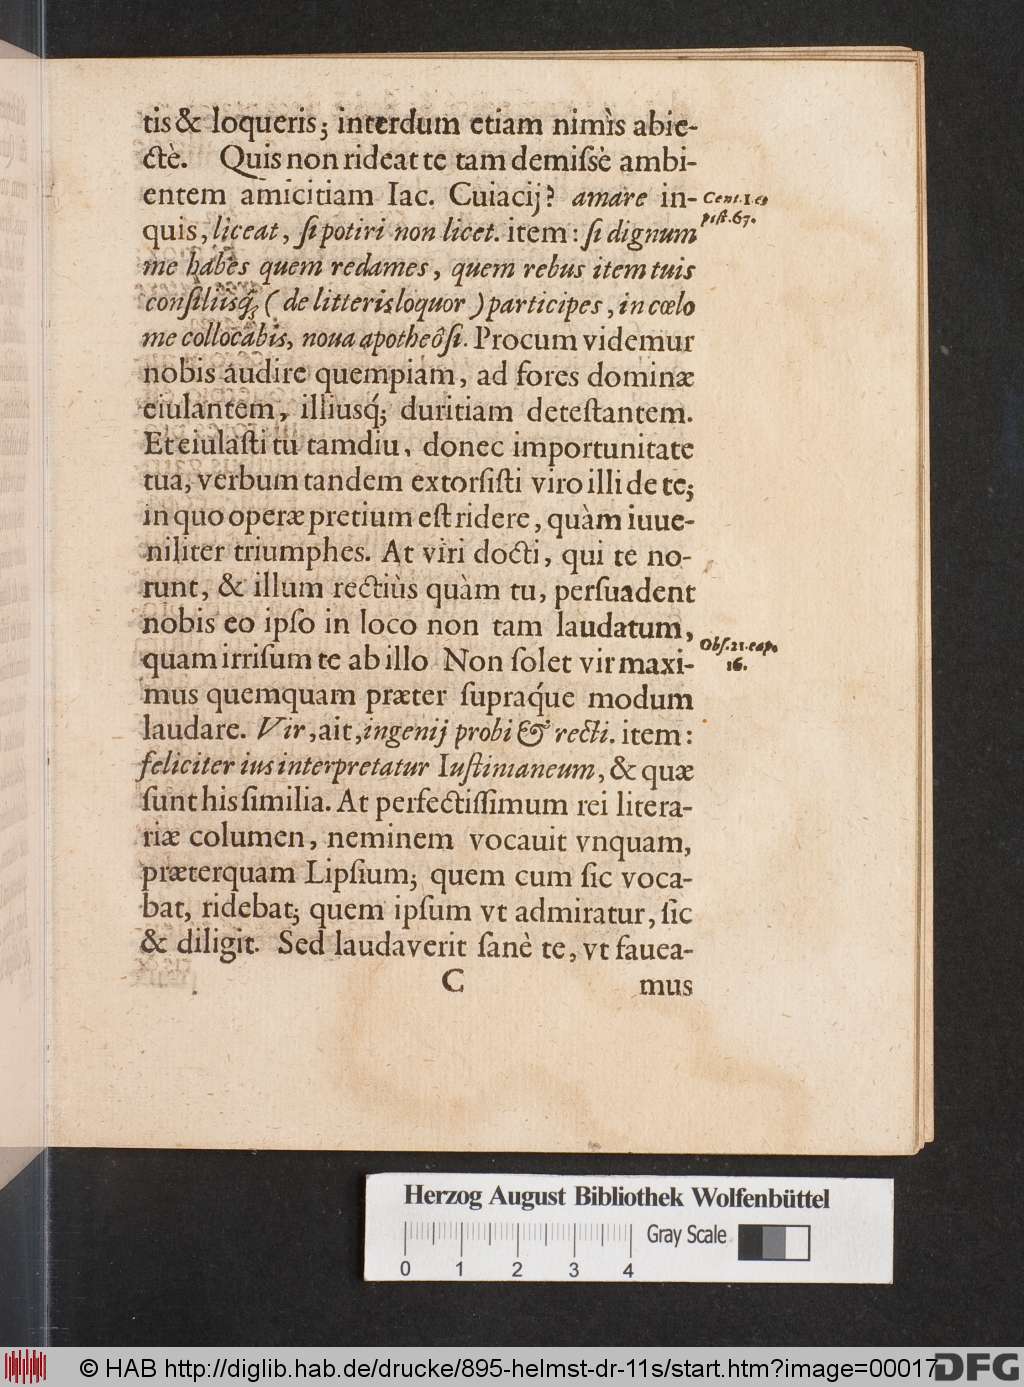 tis & loqueris; interdum etiam nimìs abie-
ctè. Quis non rideat te tam demiſsè ambi-
entem amicitiam Iac. Cuiacij? amare in-
Cent. 1. e
piſt. 67.
quis, liceat, ſi potiri non licet. item: ſi dignum
me habes quem redames, quem rebus item tuis
conſiliisq́; (de litteris loquor) participes, in cœlo
me collocabis, noua apotheôſi. Procum videmur
nobis audire quempiam, ad fores dominæ
eiulantem, illiusq́; duritiam deteſtantem.
Et eiulaſti tu tamdiu, donec importunitate
tua, verbum tandem extorſiſti viro illi de te;
in quo operæ pretium eſt ridere, quàm iuue-
niliter triumphes. At viri docti, qui te no-
runt, & illum rectiùs quàm tu, perſuadent
nobis eo ipſo in loco non tam laudatum,
Obſ. 21. cap.
16.
quam irriſum te ab illo Non ſolet vir maxi-
mus quemquam præter ſupraq́ue modum
laudare. Vir, ait, ingenij probi & recti. item:
feliciter ius interpretatur Iuſtinianeum, & quæ
ſunt his ſimilia. At perfectiſſimum rei litera-
riæ columen, neminem vocauit vnquam,
præterquam Lipſium; quem cum ſic voca-
bat, ridebat; quem ipſum vt admiratur, ſic
& diligit. Sed laudaverit ſanè te, vt fauea-
C mus
Herzog August Bibliothek Wolfenbüttel
Gray Scale
0 1 2 3 4
© HAB http://diglib.hab.de/drucke/895-helmst-dr-11s/start.htm?image=00017
DFG